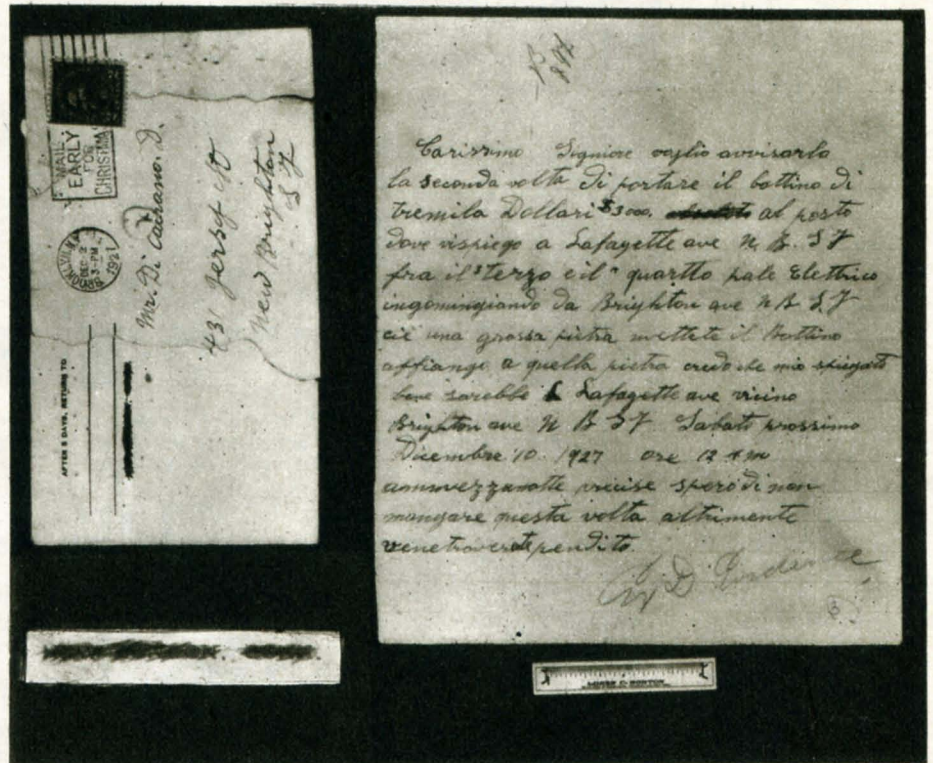 MAIL
EARLY
FOR
CHRISTMAS
BROOKLYN, N.Y.
DEC 2
3-PM
1927
Mr. Di Carrano. D.
431 Jersey
New Brighton
S J
AFTER 5 DAYS, RETURN TO
Carissimo Signiore voglio avvisarlo
la seconda volta di portare il bottino di
tremila Dollari $3000. al posto
dove vispiego a Lafayette ave N B. S J
fra il terzo e il quartto pale Elettrico
ingomingiando da Brighton ave N B S J
cié una grossa pietra mettete il Bottino
affiango a quella pietra credo che mio spiegato
bene sarebbe Lafayette ave vicino
Brighton ave N B S J Sabato prossimo
Dicembre 10. 1927 ore 12
precise spero di non
mangare questa volta altrimente
pendito.
D
3